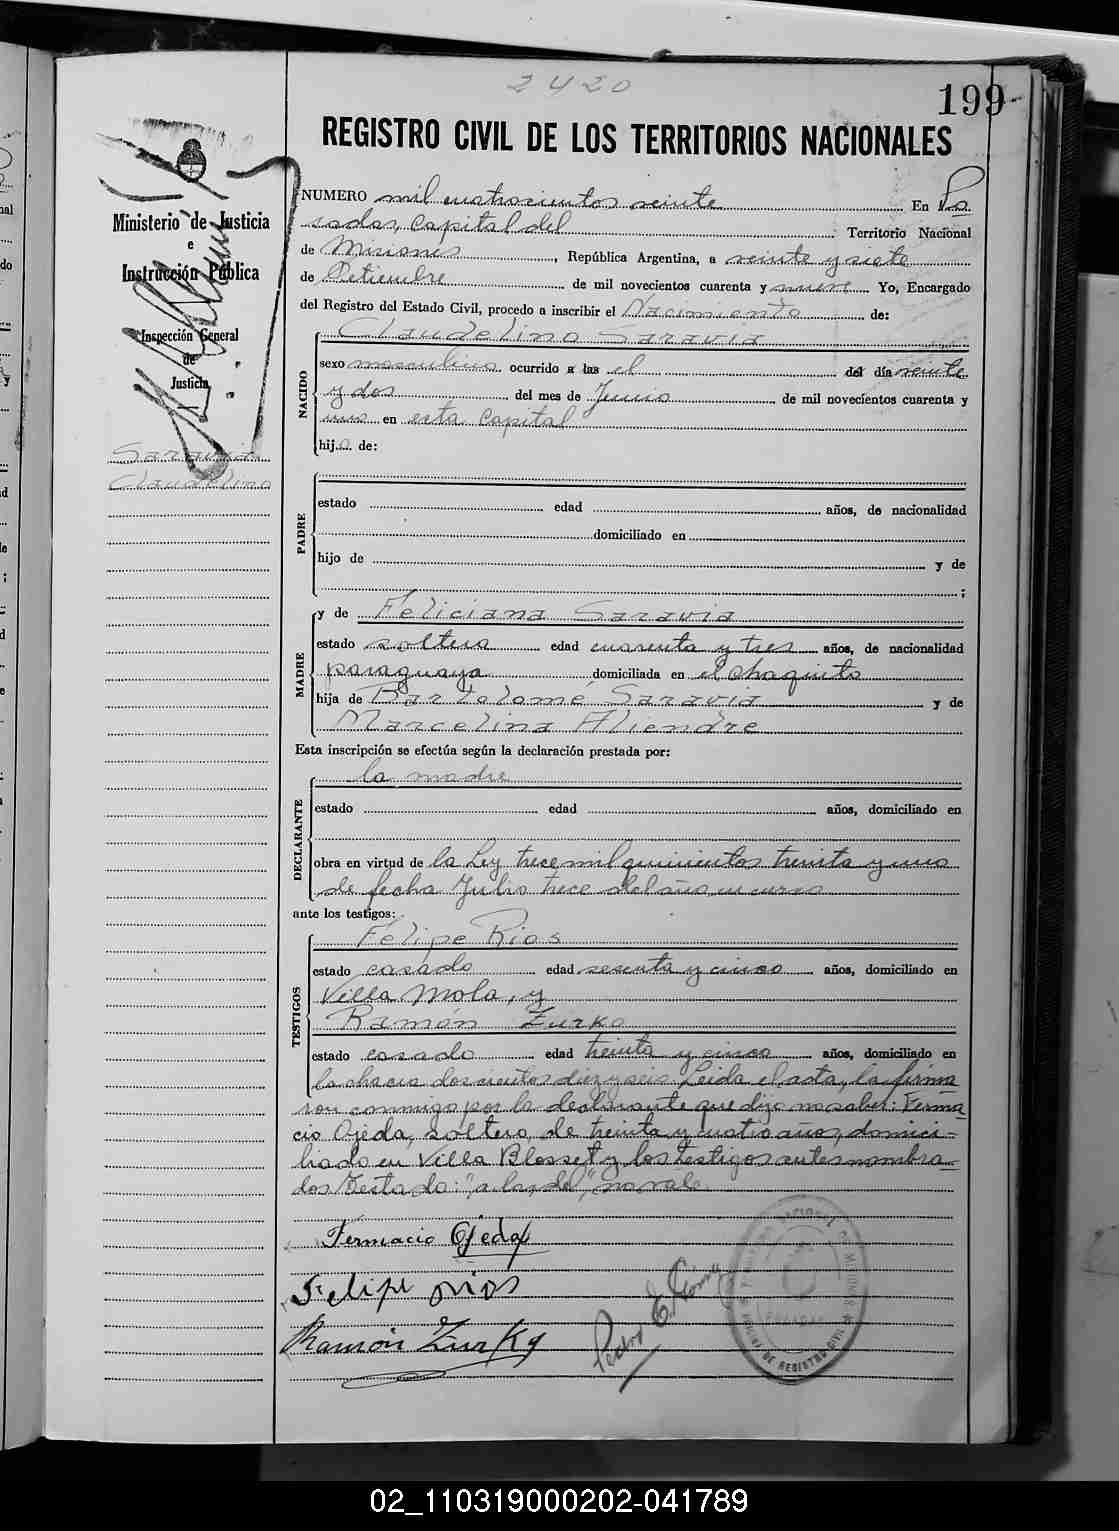 2420
199
REGISTRO CIVIL DE LOS TERRITORIOS NACIONALES
Ministerio de Justicia
e
Instrucción Pública
Inspección General
de
Justicia
Saravia
Claudelino
NUMERO mil cuatrocientos veinte En Po
sadas, Capital del Territorio Nacional
de Misiones, República Argentina, a veinte y siete
de Setiembre de mil novecientos cuarenta y nueve. Yo, Encargado
del Registro del Estado Civil, procedo a inscribir el Nacimiento de:
NACIDO
Claudelino Saravia
sexo masculino ocurrido a las el del día veinte
y dos del mes de Junio de mil novecientos cuarenta y
uno en esta Capital
hijo de:
PADRE
estado edad años, de nacionalidad
domiciliado en
hijo de y de
;
MADRE
y de Feliciana Saravia
estado soltera edad cuarenta y tres años, de nacionalidad
paraguaya domiciliada en el Chaquito
hija de Bartolomé Saravia y de
Marcelina Aliendre
Esta inscripción se efectúa según la declaración prestada por:
DECLARANTE
la madre
estado edad años, domiciliado en
obra en virtud de la Ley trece mil quinientos treinta y uno
de fecha Julio trece del año en curso
ante los testigos:
TESTIGOS
Felipe Rios
estado casado edad sesenta y cinco años, domiciliado en
Villa Mola, y
Ramón Zurko
estado casado edad treinta y cinco años, domiciliado en
la chacra doscientos diez y seis. Leida el acta, la firma
ron conmigo por la declarante que dijo no saber: Ferma
cio Ojeda, soltero, de treinta y cuatro años, domici-
liado en Villa Blosset y los testigos antes nombra-
dos Testado: "a las, del", no vale.
Fermacio Ojeda
Felipe Rios
Ramón Zurky
Pedro E.
POSADAS
OFICINA DE REGISTRO CIVIL
02_110319000202-041789